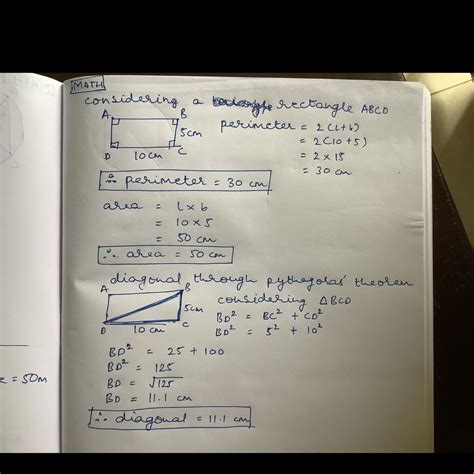 MATH
considering a rectangle ABCD
A B
5cm
D 10cm C
perimeter = 2(l+b)
= 2(10+5)
= 2 x 15
= 30 cm
∴ perimeter = 30 cm
area = l x b
= 10 x 5
= 50 cm
∴ area = 50 cm
diagonal through pythegoras' theorem
A B
5cm
D 10 cm C
considering △BCD
BD² = BC² + CD²
BD² = 5² + 10²
BD² = 25 + 100
BD² = 125
BD = √125
BD = 11.1 cm
∴ diagonal = 11.1 cm
= 50m